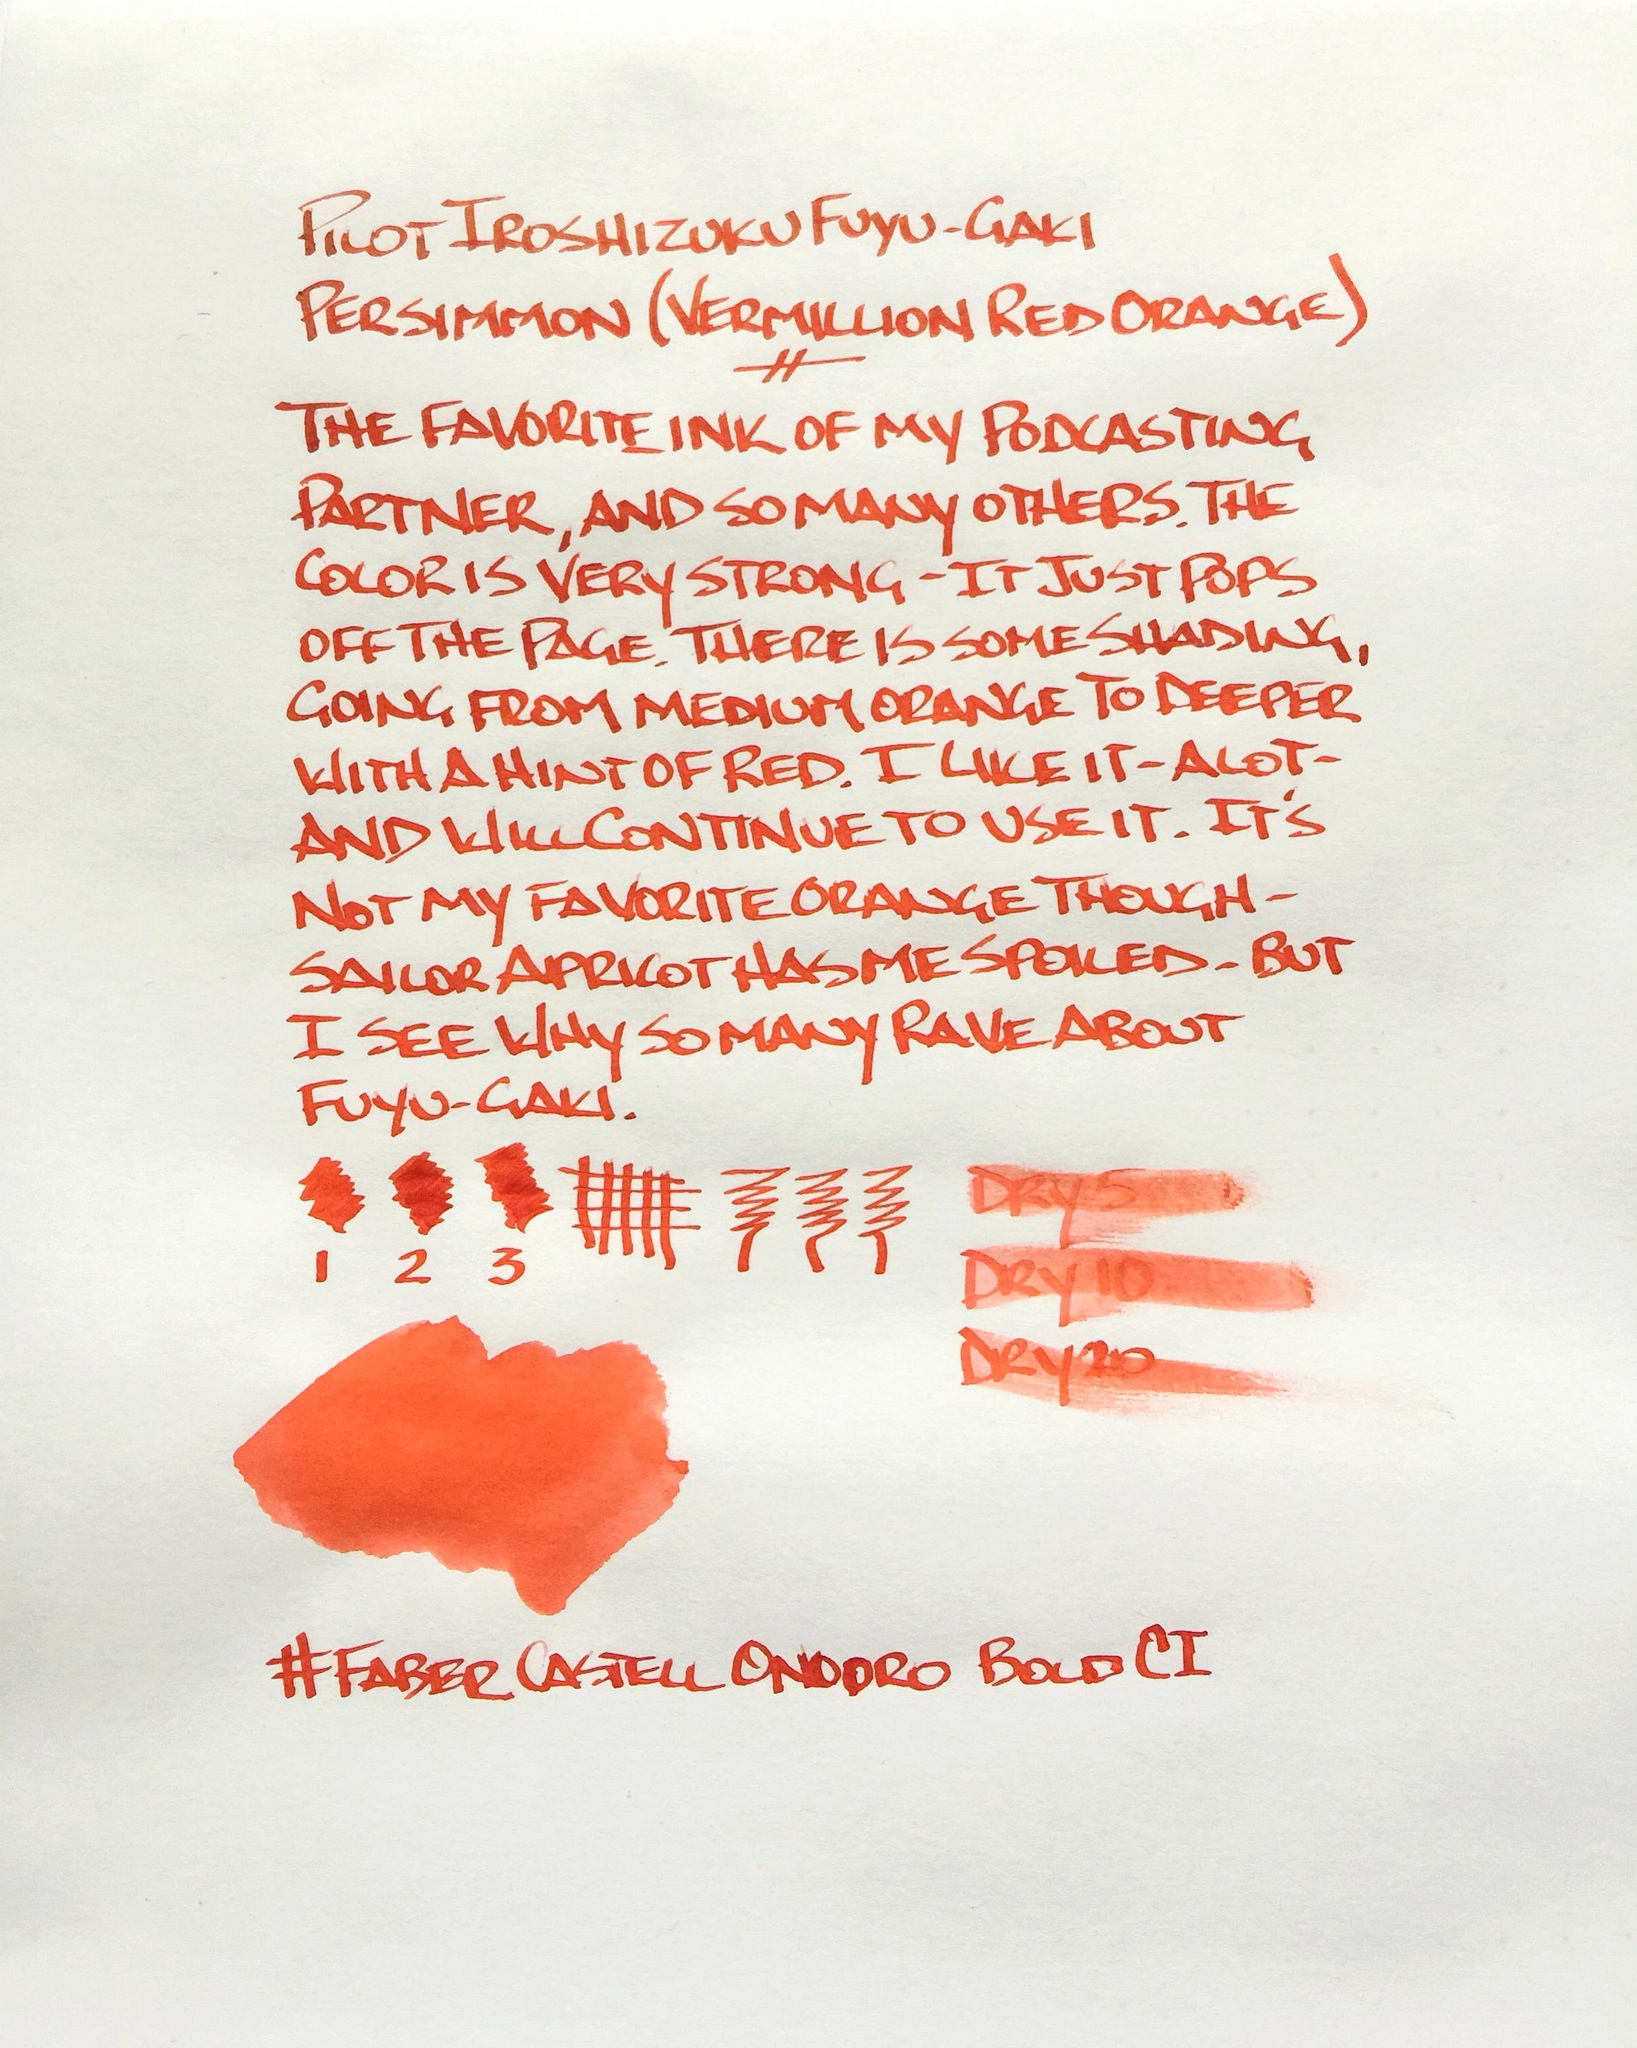 PILOT IROSHIZUKU FUYU-GAKI
PERSIMMON (VERMILLION RED ORANGE)
THE FAVORITE INK OF MY PODCASTING
PARTNER, AND SO MANY OTHERS. THE
COLOR IS VERY STRONG - IT JUST POPS
OFF THE PAGE. THERE IS SOME SHADING,
GOING FROM MEDIUM ORANGE TO DEEPER
WITH A HINT OF RED. I LIKE IT - A LOT -
AND WILL CONTINUE TO USE IT. IT'S
NOT MY FAVORITE ORANGE THOUGH -
SAILOR APRICOT HAS ME SPOILED - BUT
I SEE WHY SO MANY RAVE ABOUT
FUYU-GAKI.
1 2 3
DRY 5
DRY 10
DRY 20
#FABER CASTELL ONDORO BOLD CI